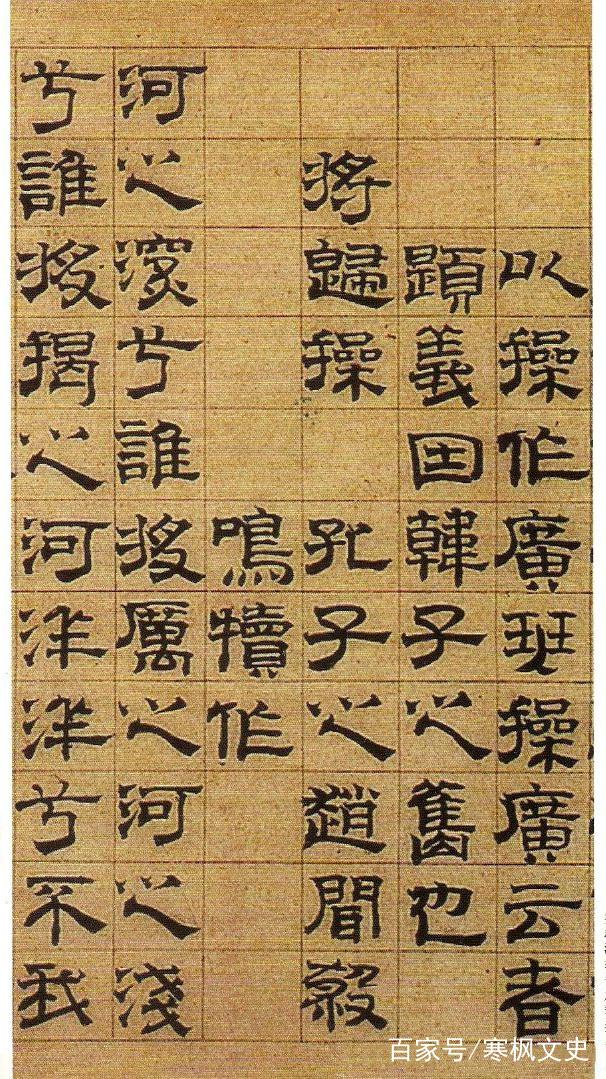 以操作廣班操廣云者
題義因韓子之舊也
將歸操 孔子之趙聞殺
鳴犢作
河之深兮誰授厲之河之淺
兮誰授揭之河洋洋兮不我
百家号/寒枫文史